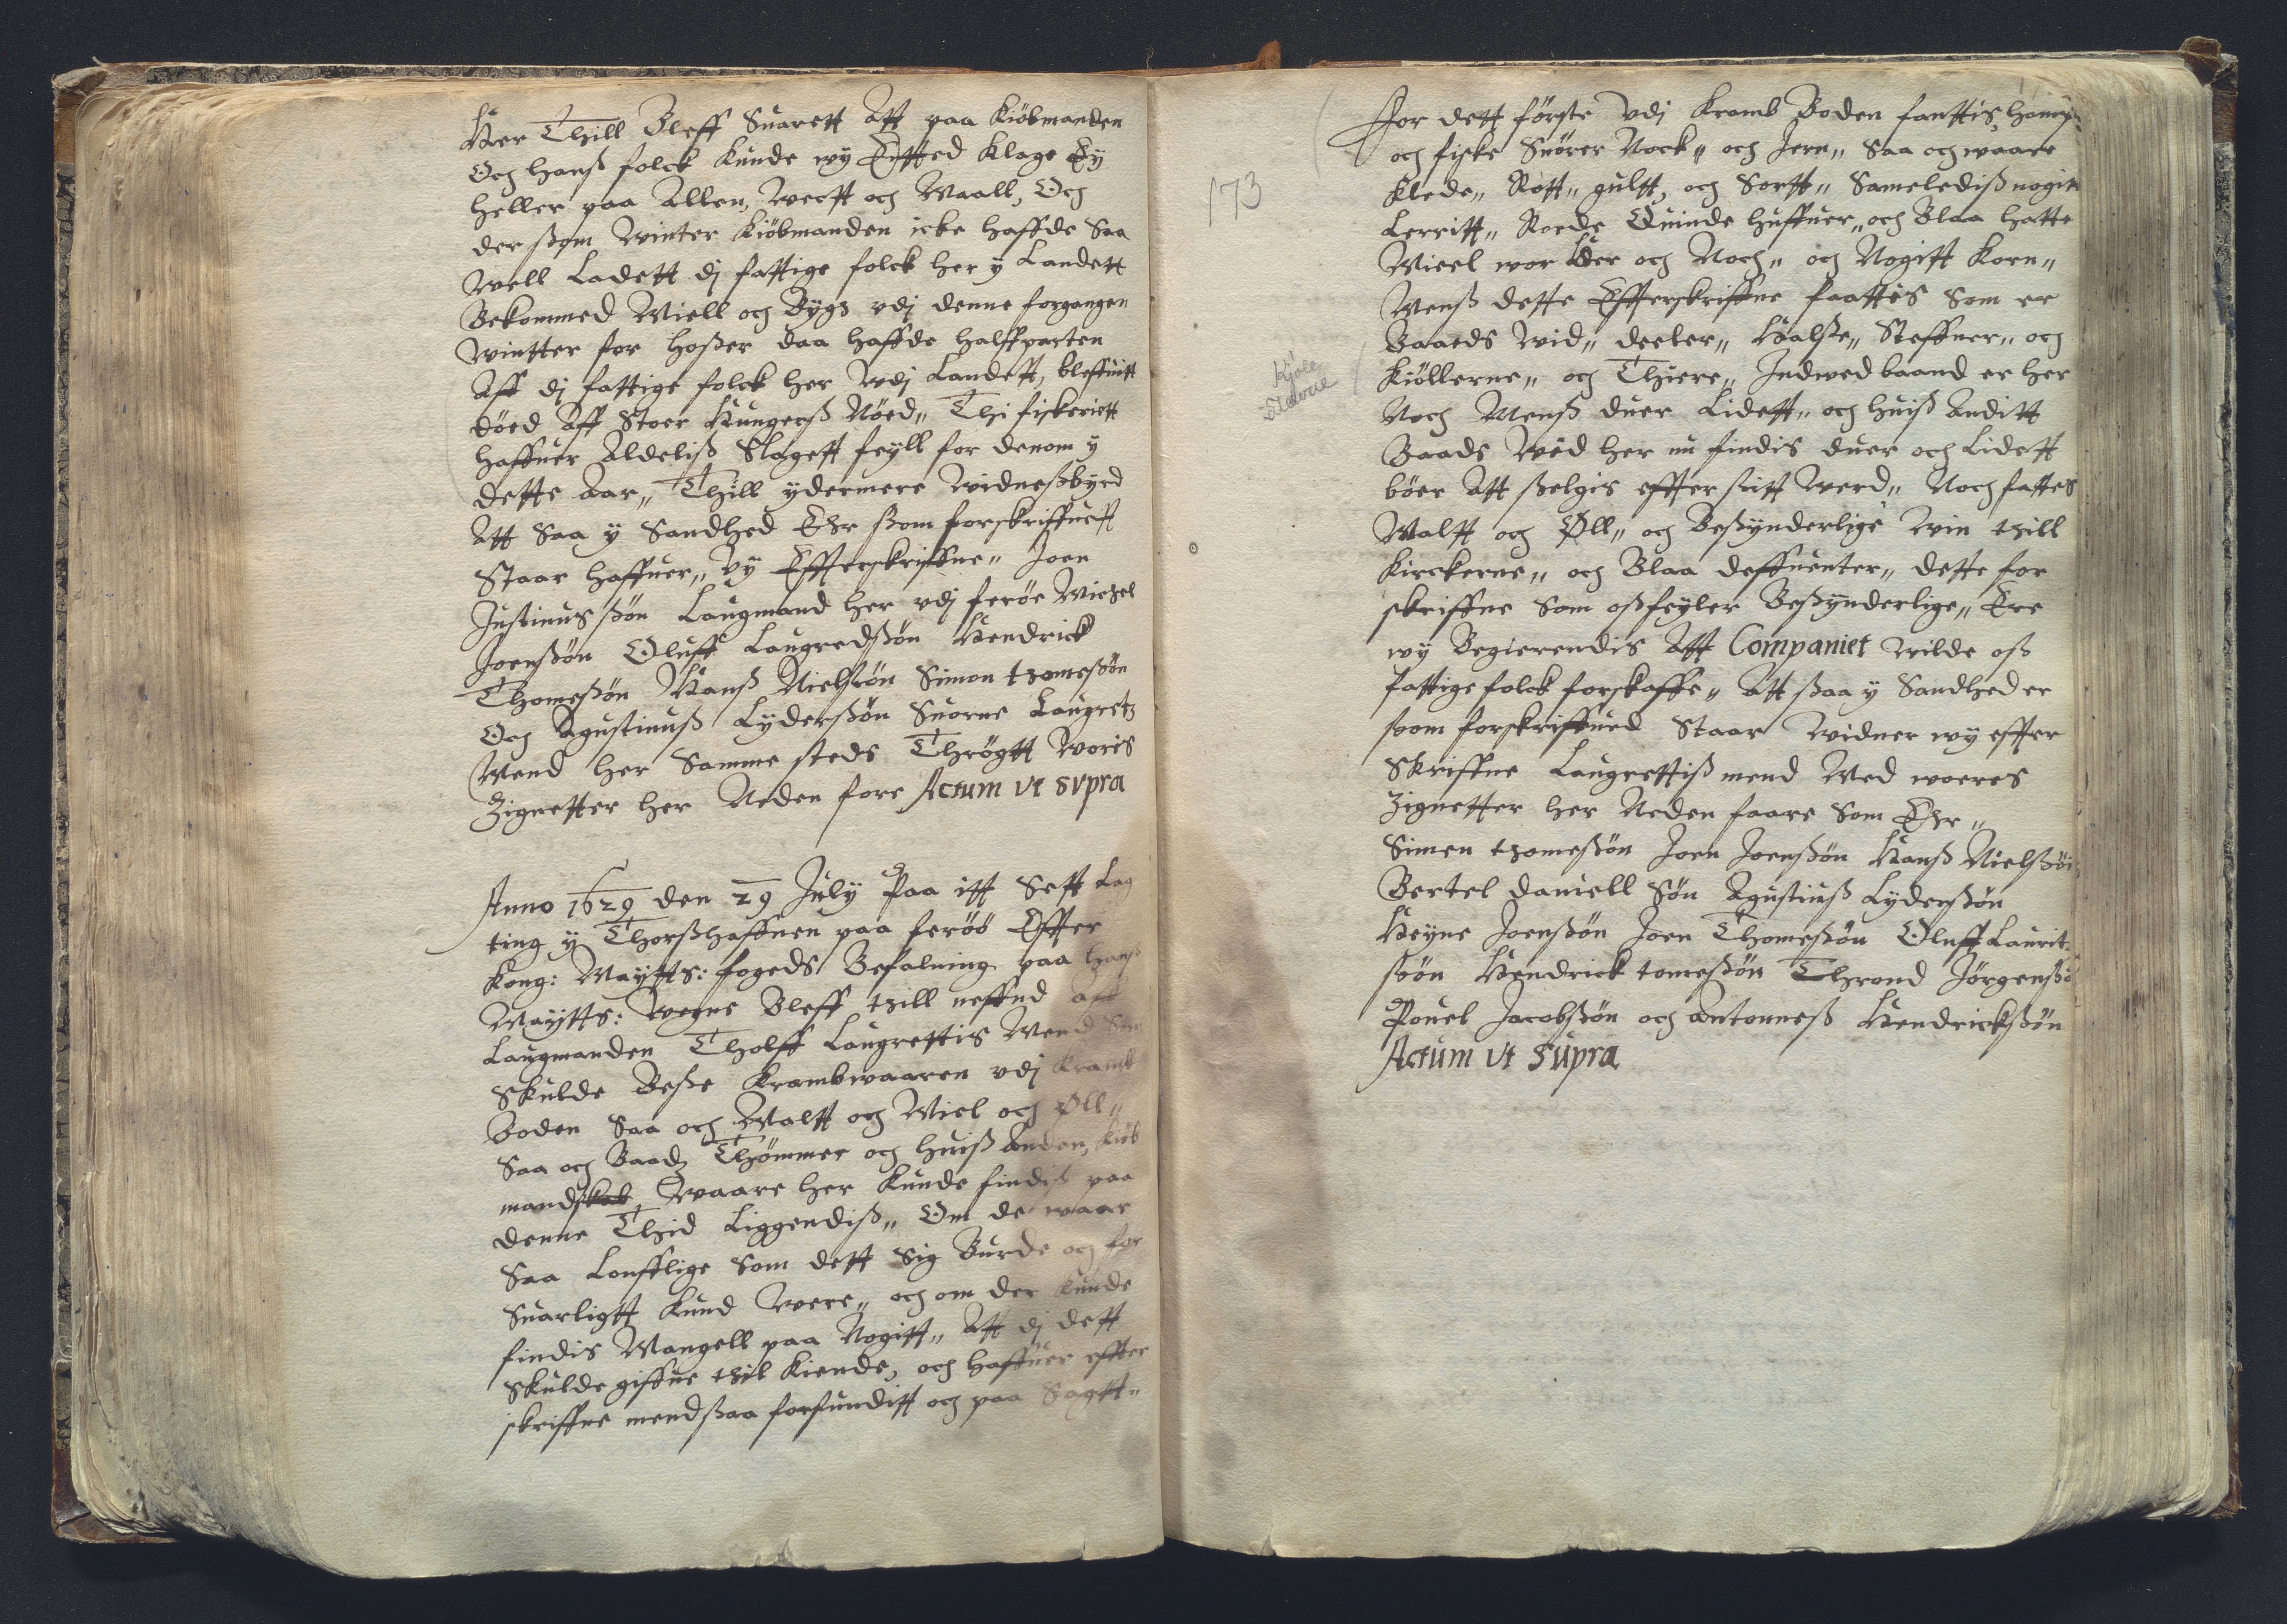 Her Thill Bleff Suarett Att paa Kiöbmanden
Och hanß folck Kunde wy Intted Klage Ey
heller paa Allen, wecht och Maall, Och
der ßom Winter Kiöbmanden icke haffde Saa
Well Ladett dj fattige folck her y Landett
Bekommed Miell och Bygs vdj denne forgangen
wintter for hoßer daa haffde halffparten
Aff dj fattige folck her Udj Landett, bleffuitt
döed Aff Stoer Hungerß Nöed„ Thi fiskeriett
haffuer Aldeliß Slagett feyll for denom y
dette Aar„ Thill ydermere widneßbyrd
Att Saa y Sandhed Ehr ßom forskriffuett
Staar haffuer„ Vy Effterskriffne„ Joen
Justinus ßön Laugmand her vdj feröe Michel
Joenßön Oluff Laugredßön Hendrick
Thomeßön Hanß Nielsön Simon thomeßön
Och Agustinuß Lyderßön Suorne Laugretz
Mend her Samme steds Thrögtt Woris
Zignetter her Neden fore Actum vt svpra
Anno 1629 den 29 July Paa itt Sett Lag
ting y Thorßhaffnen paa feröö Effter
Kong: Maytts: fogeds Befalning paa hanß
Maytts: wegne Bleff thill neffnd aff
Laugmanden Tholff Laugrettis Mend Som
Skulde Beße Krambwaaren vdj Kramb
Boden Saa och Maltt och Miel och Øll„
Saa och Baadz Thömmer och huiß Anden, Kiöb
mandskab waare her Kunde findiß paa
denne Thid Liggendiß„ Om de waar
Saa Loufflige Som dett Sig Burde och for
Suarligtt Kund were„ och om der Kunde
findis Mangell paa Nogitt„ Att dj dett
Skulde giffue thil Kiende, och haffuer effter
skriffne mend ßaa forfunditt och paa Sagtt„
173
For dett förste Vdj Kramb Boden fanttis, hamp„
och fiske Snörer Nock„ och Jern„ Saa och waare
Klede„ Rött„ gultt, och Sortt„ Sameledißnogin
Lerritt„ Roede Quinde huffuer„ och Blaa hatte
Mieel wor Her och Noch„ och Nogitt Korn„
Menß dette Effterskriffne faattis Som er
Baaeds wid„ deeler„ Halße„ Steffner„ och
Kiöllerne„ och Thiere„ Indwed baand er her
Noch Menß duer Lidett„ och huiß Anditt
Baads Wed her nu findis duer och Lidett
böer Att ßelgis effter ßitt werd„ Noch fattes
Maltt och Øll„ och Beßynderlige Win thill
Kirckerne„ och Blaa deffuenter„ dette for
skriffne Som oßfeyler Beßynderlige„ Ere
wy Begierendis Att Companiet wilde oß
fattige folck forskaffe„ Att ßaa y Sandhed er
ßom forskriffued Staar widner wy effter
Skriffne Laugrettiß mend Med woeres
Zignetter her Neden faare Som Ehr„
Simen thomeßön Joen Joenßön Hanß Nielßön
Bertel daniell Sön Agustinß Lyderßön
Heyne Joenßön Joen Thomeßön Oluff Laurit
ßöön Hendrick tomeßön Thrond Jörgenßö
Pouel Jacobßön och Antonneß Hendrickßön
Actum vt supra